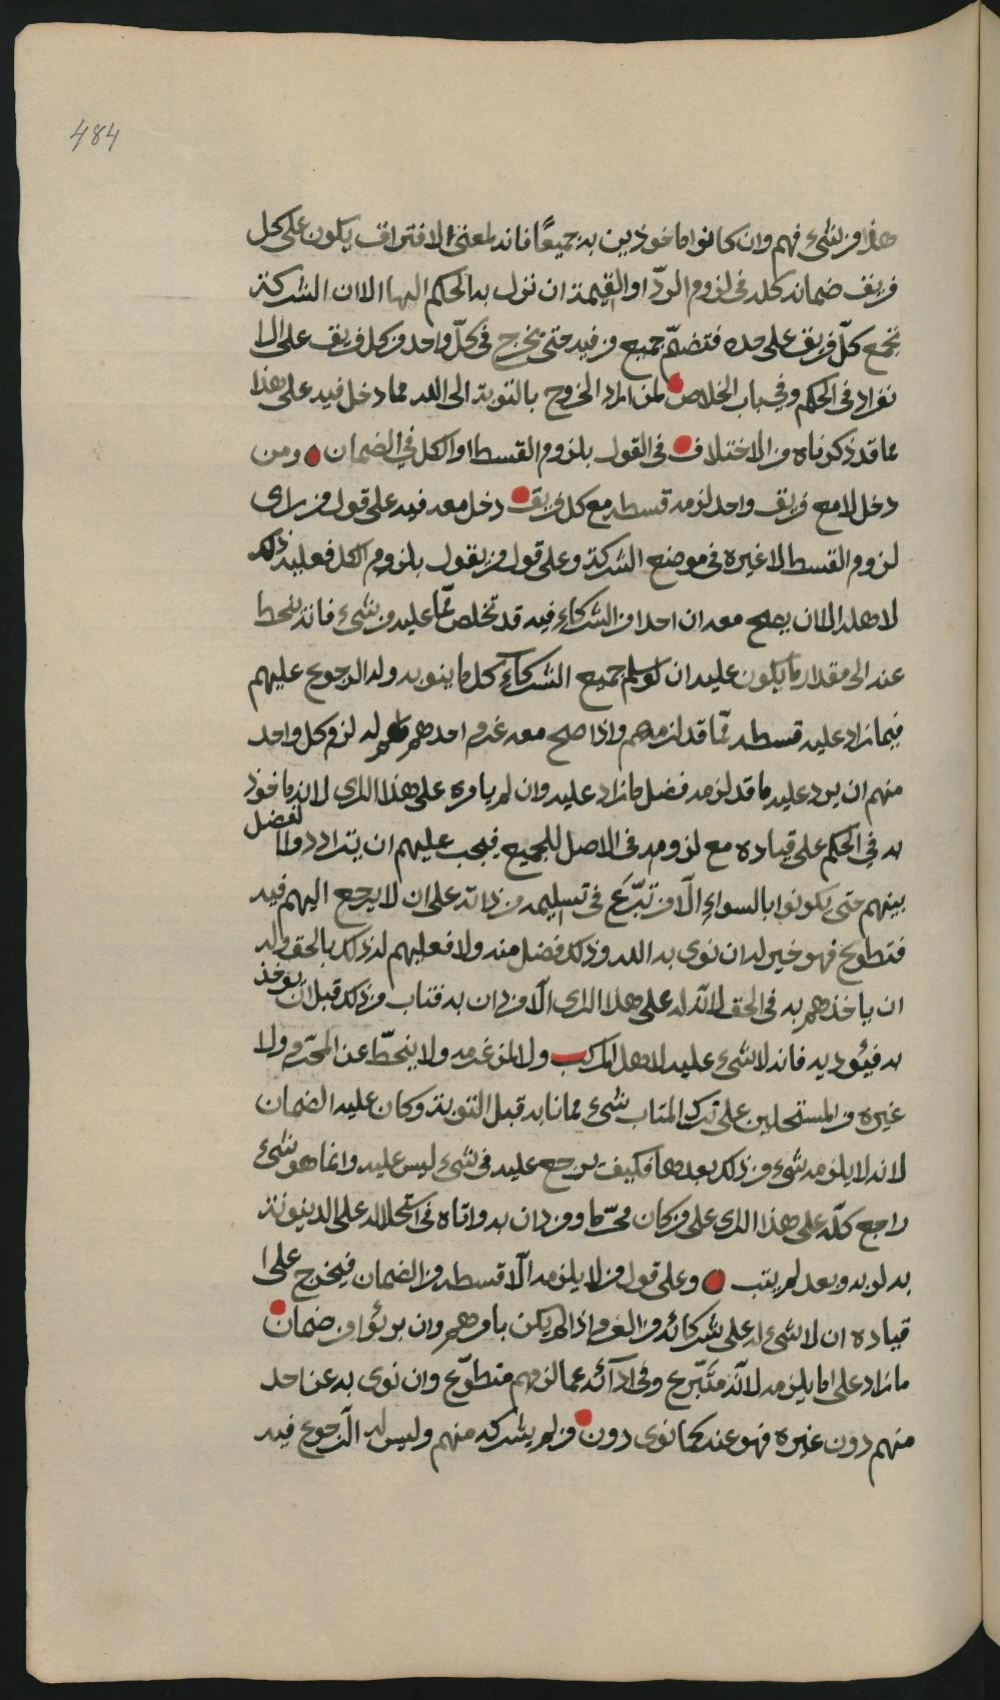 484
هذا من شيء فهم وان كانوا ماخوذين به جميعًا فانه لمعنى الافتراق يكون على كل
فريق ضمانه كله في لزوم الردّ او القيمة ان نزل به الحكم اليها الا ان الشركة
تجمع كلّ فريق على حده فتضمّ جميع من فيه حتى يخرج في كلّ واحد من كل فريق على الا
نفراد في الحكم وفي باب الخلاص لمن اراد الخروج بالتوبة الى الله مما دخل فيه على هذا
ما قد ذكرناه من الاختلاف في القول بلزوم القسط او الكل في الضمان ومن
دخل لا مع فريق واحد لزمه قسطه مع كل فريق دخل معه فيه على قول من راى
لزوم القسط لا غيره في موضع الشركة وعلى قول من يقول بلزوم الكل فعليه ذلك
لاهله الا ان يصح معه ان احدا من الشركاء فيه قد تخلص ممّا عليه من شيء فانه ينحط
عنه الى مقدار ما يكون عليه ان لو سلم جميع الشركاء كل ما ينوبه وله الرجوع عليهم
فيما زاد عليه قسطه ممّا قد لزمهم واذا صح معه غرم احدهم له لزم كل واحد
منهم ان يرد عليه ما قد لزمه فضل ما زاد عليه وان لم يامره على هذا الراي لانه ماخوذ
به في الحكم على قياده مع لزومه في الاصل للجميع فيجب عليهم ان يترادوا الفضل
بينهم حتى يكونوا بالسواء الّا من تبرّع في تسليمه من ذاته على ان لا يرجع اليهم فيه
فتطوع فهو خير له ان نوى به الله وذلك فضل منه ولا فعليهم له ذلك بالحق وله
ان ياخذهم به في الحق لانّه له على هذا الراي الّا من دان به فتاب من ذلك قبل ان يوخذ
به فيؤديه فانه لا شيء عليه لاهل المركب ولا لمن غرمه ولا ينحطّ عن المحرم ولا
غيره من المستحلين على ترك المتاب شيء مما نابه قبل التوبة وكان عليه الضمان
لانه لا يلزمه شيء من ذلك بعدها فكيف يرجع عليه في شيء ليس عليه وانما هو شيء
راجع كلّه على هذا الراي على من كان محرّما ومن دان به واتاه في استحلاله على الدينونة
به لوبه وبعد لم يتب وعلى قول من لا يلزمه الّا قسطه من الضمان فيخرج على
قياده ان لا شيء له على شركائه من الغرم اذا لم يكن بامرهم وان برئوا من ضمان
ما زاد على ما يلزمه لانّه متبّرع وفي ادآئه عما لزمهم متطوّع وان نوى به عن احد
منهم دون غيره فهو عنه كما نوى دون من لم يشركه منهم وليس له الّرجوع فيه